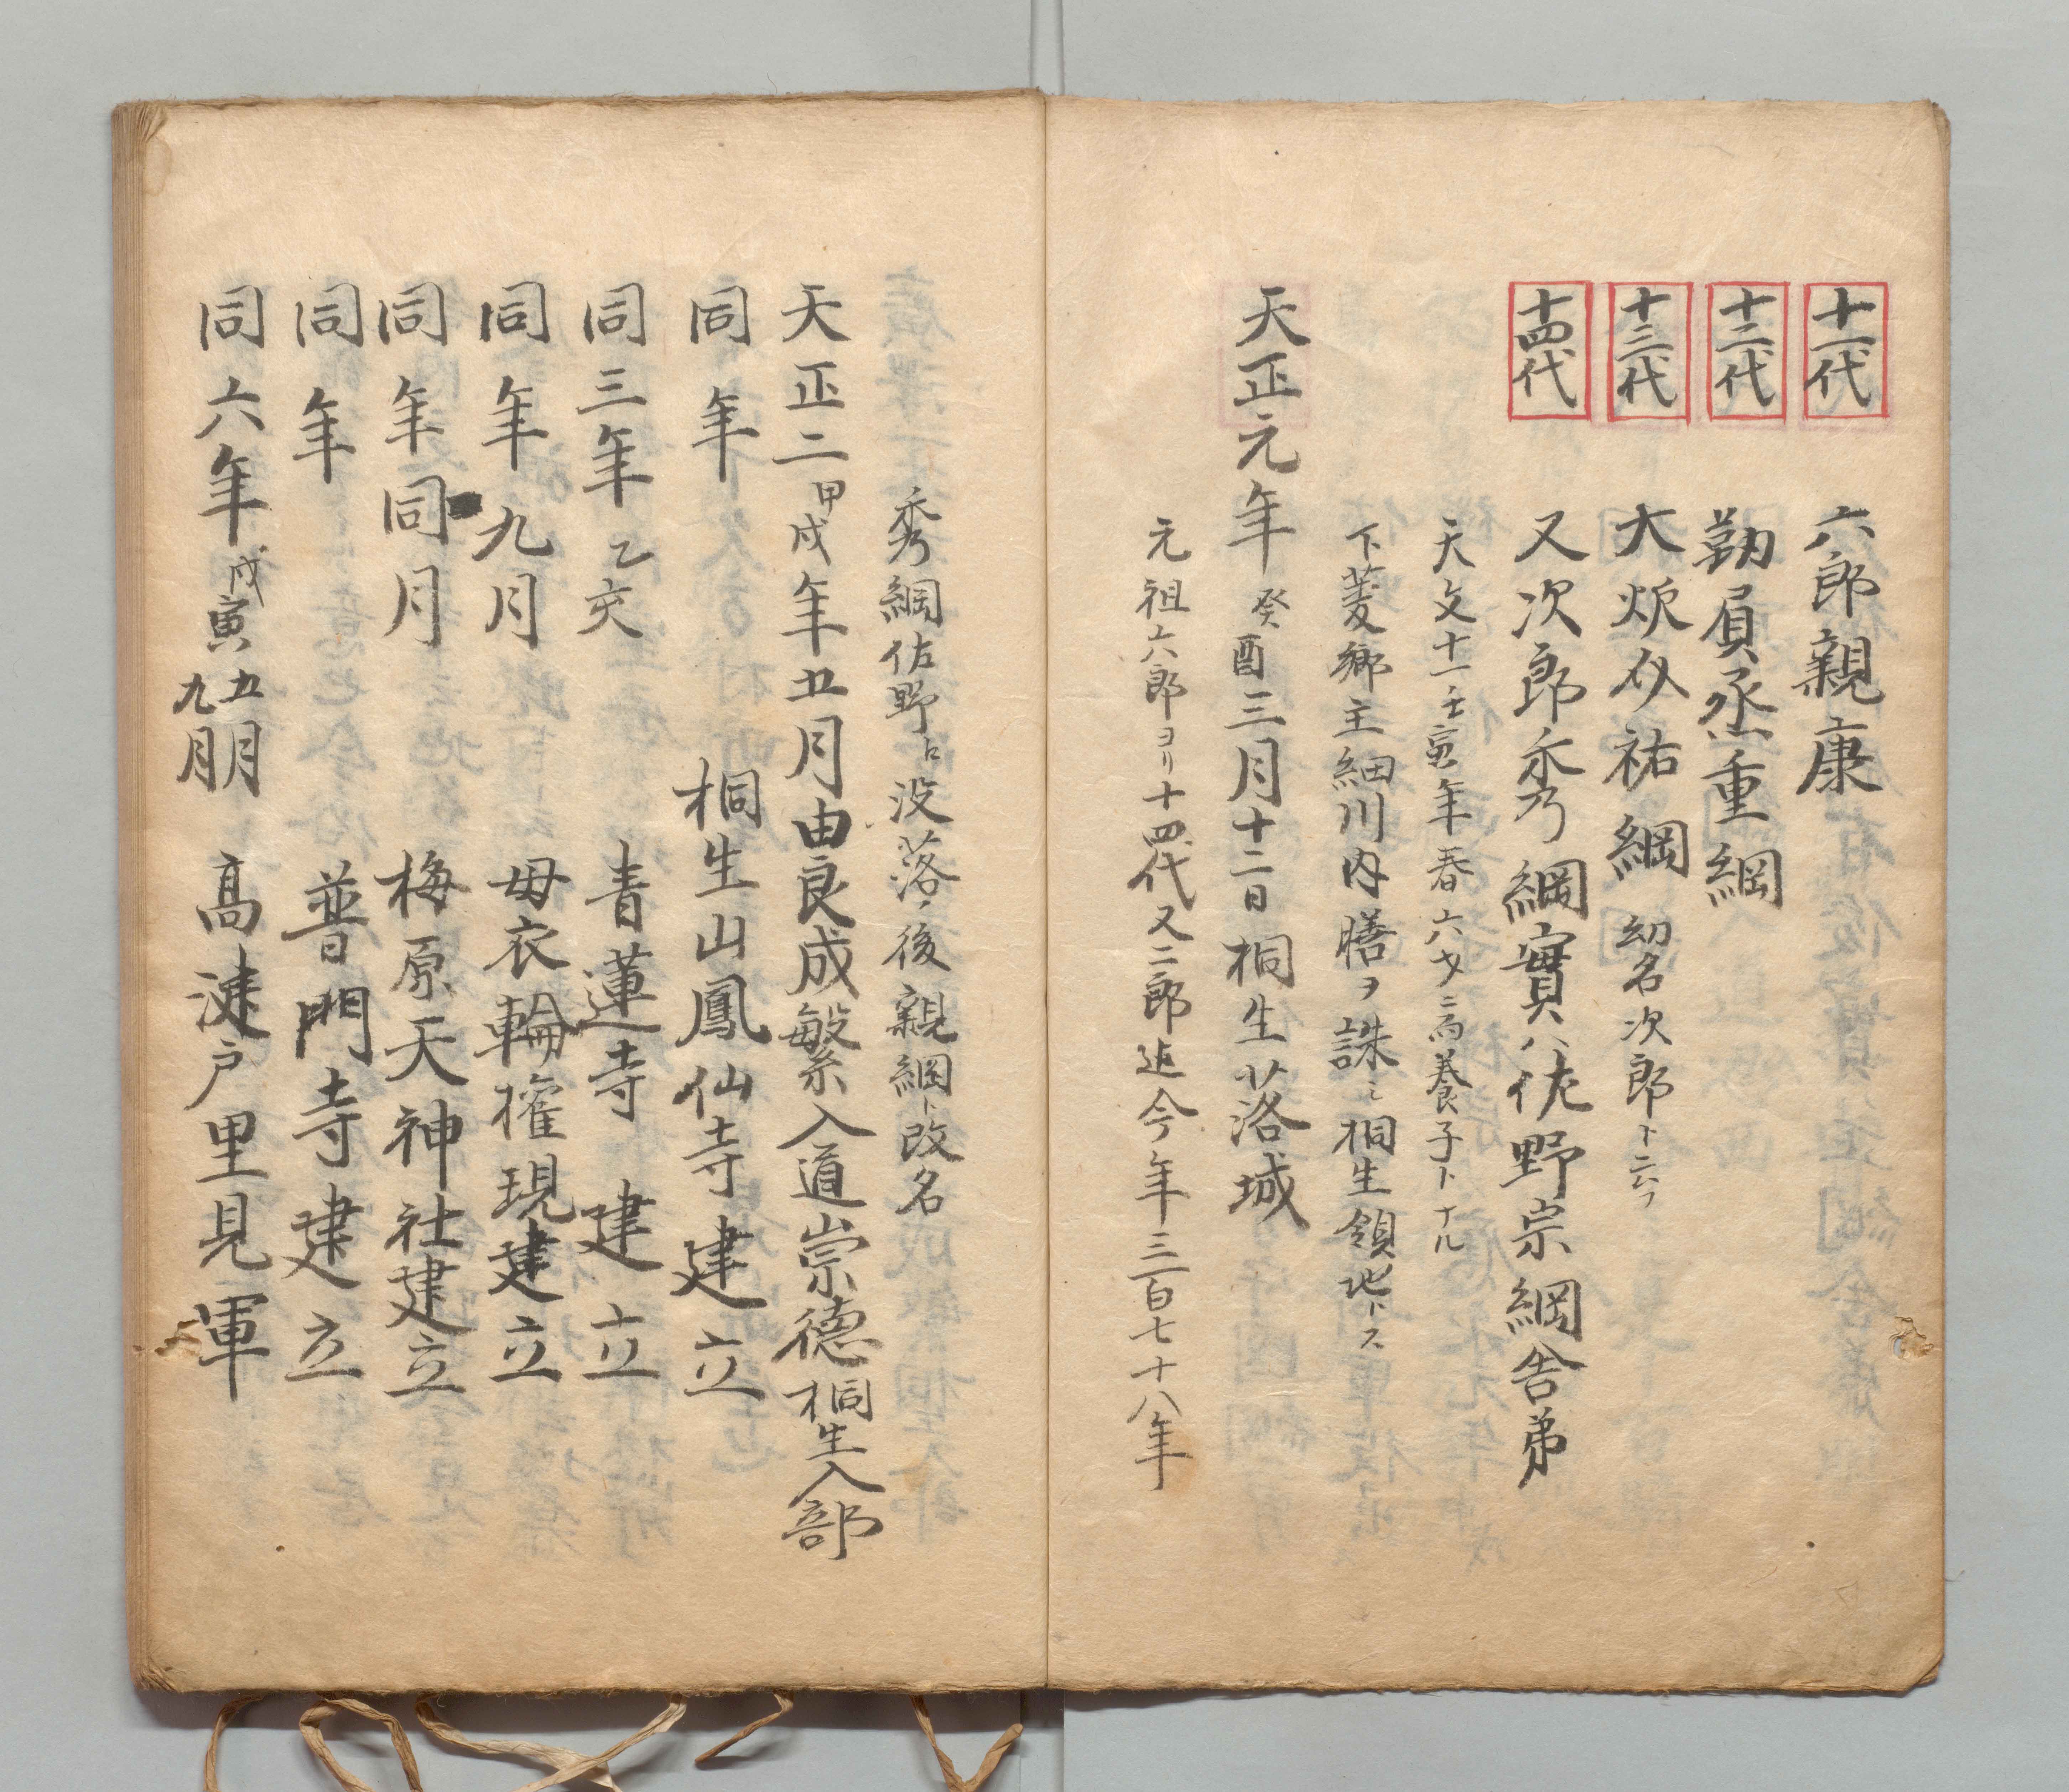 十一代 六郎親康
十二代 靱屓丞重綱
十三代 大炊介祐綱 幼名次郎ト云フ
十四代 又次郎 綱實ハ佐野宗綱舎弟
天文十一壬寅年春六才ニ而養子トナル
下菱郷主細川内膳ヲ誅シ桐生領地トス
天正元年癸酉三月十二日桐生落城
元祖六郎ヨリ十四代又二郎迄今年三百七十八年
秀綱佐野ニ没落ノ後親綱ト改名
天正二甲戌年五月由良成繁入道崇德桐生入部
同年 桐生山鳳仙寺建立
同三年乙亥 青蓮寺建立
同年九月 毋衣輪權現建立
同年同月 梅原天神社建立
同年 普門寺建立
同六年戊寅五月九月 髙津戸里見軍